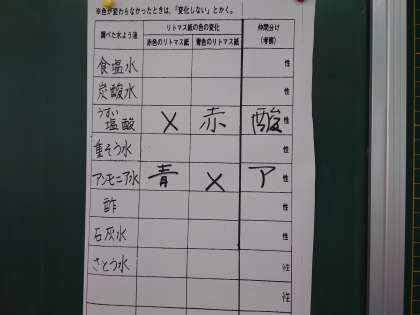 ※色が変わらなかったときは、「変化しない」とかく。
調べた水よう液 リトマス紙の色の変化 仲間分け
赤色のリトマス紙 青色のリトマス紙 (考察)
食塩水 性
炭酸水 性
うすい
塩酸 × 赤 酸性
重そう水 性
アンモニア水 青 × ア性
酢 性
石灰水 性
さとう水 性
性